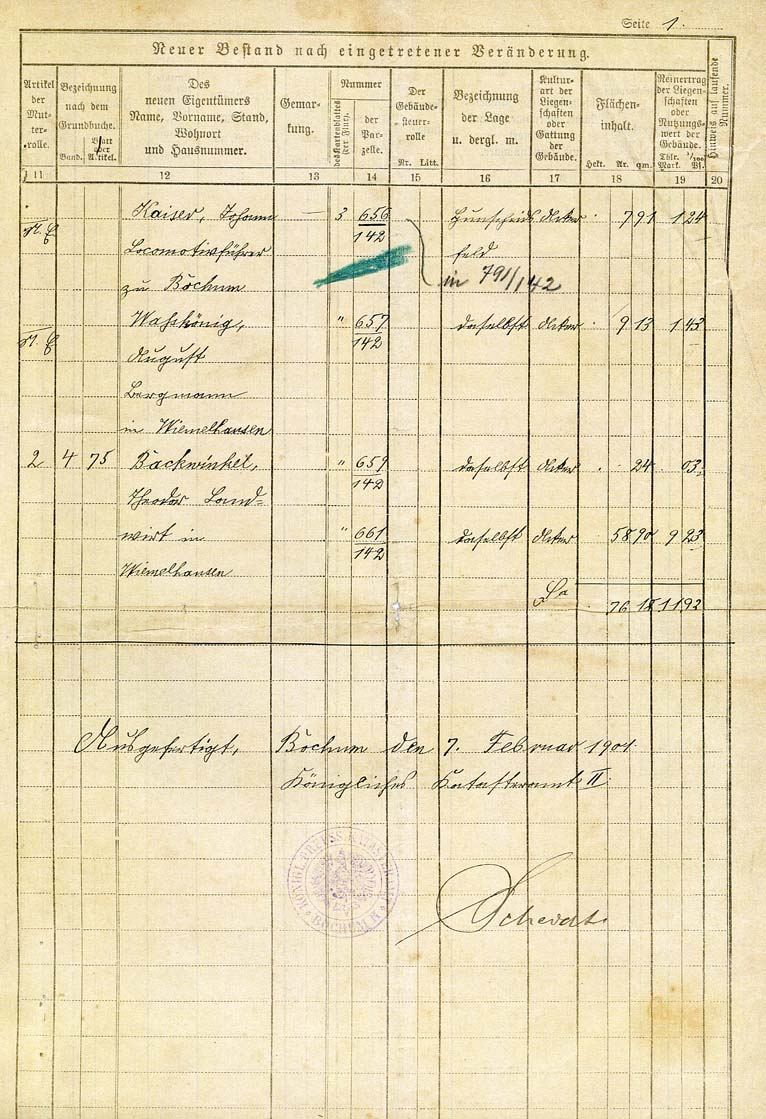 Seite 1.
Neuer Bestand nach eingetretener Veränderung.
Artikel der Mutterrolle.
Bezeichnung nach dem Grundbuche.
Band. Blatt oder Artikel.
Des neuen Eigentümers Name, Vorname, Stand, Wohnort und Hausnummer.
Gemarkung.
Nummer
des Kartenblattes (der Flur).
der Parzelle.
Der Gebäudesteuerrolle
Nr. Litt.
Bezeichnung der Lage u. dergl. m.
Kulturart der Liegenschaften oder Gattung der Gebäude.
Flächeninhalt.
Hekt. Ar. qm.
Reinertrag der Liegenschaften oder Nutzungswert der Gebäude.
Thlr. 1/100
Mark. Pf.
Hinweis auf laufende Nummer.
11 12 13 14 15 16 17 18 19 20
Kaiser, Johann — 3 656/142 Hunscheids Acker 7 91 1 24
Locomotivführer feld
zu Bochum in 791/142
" 657/142 daselbst Acker 9 13 1 43
August
Bergmann
in Wiemelhausen
2 4 75 Backwinkel, " 659/142 daselbst Acker 24 03
Theodor Land-
wirt in " 661/142 daselbst Acker 58 90 9 23
Wiemelhausen
Sa 76 18 11 92
Ausgefertigt, Bochum den 7. Februar 1901.
Königliches Katasteramt II.
KÖNIGL. PREUSS. KATASTERAMT
BOCHUM II